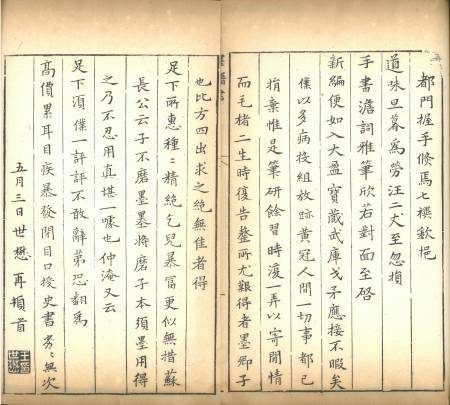 都門握手倐焉七禩歉挹
道味旦暮為勞汪二丈至忽損
手書澹詞雅筆欣若對面至啓
新編便如入大盈寶藏武庫戈矛應接不暇矣
僕以多病投組放跡黃冠人間一切事都已
捐棄惟是筆研餘習時復一弄以寄閒情
而毛楮二生時復告罄所尤艱得者墨卿子
也比方四出求之絶無佳者得
足下所惠種〻精絶乞兒暴富更似無措蘇
長公云子不磨墨墨將磨子本須墨用得
之乃不忍用真堪一噱也仲淹又云
足下須僕一評評不敢辭第恐翻為
高價累耳目疾暴發閉目口授史書劣〻無次
五月三日世懋再頓首